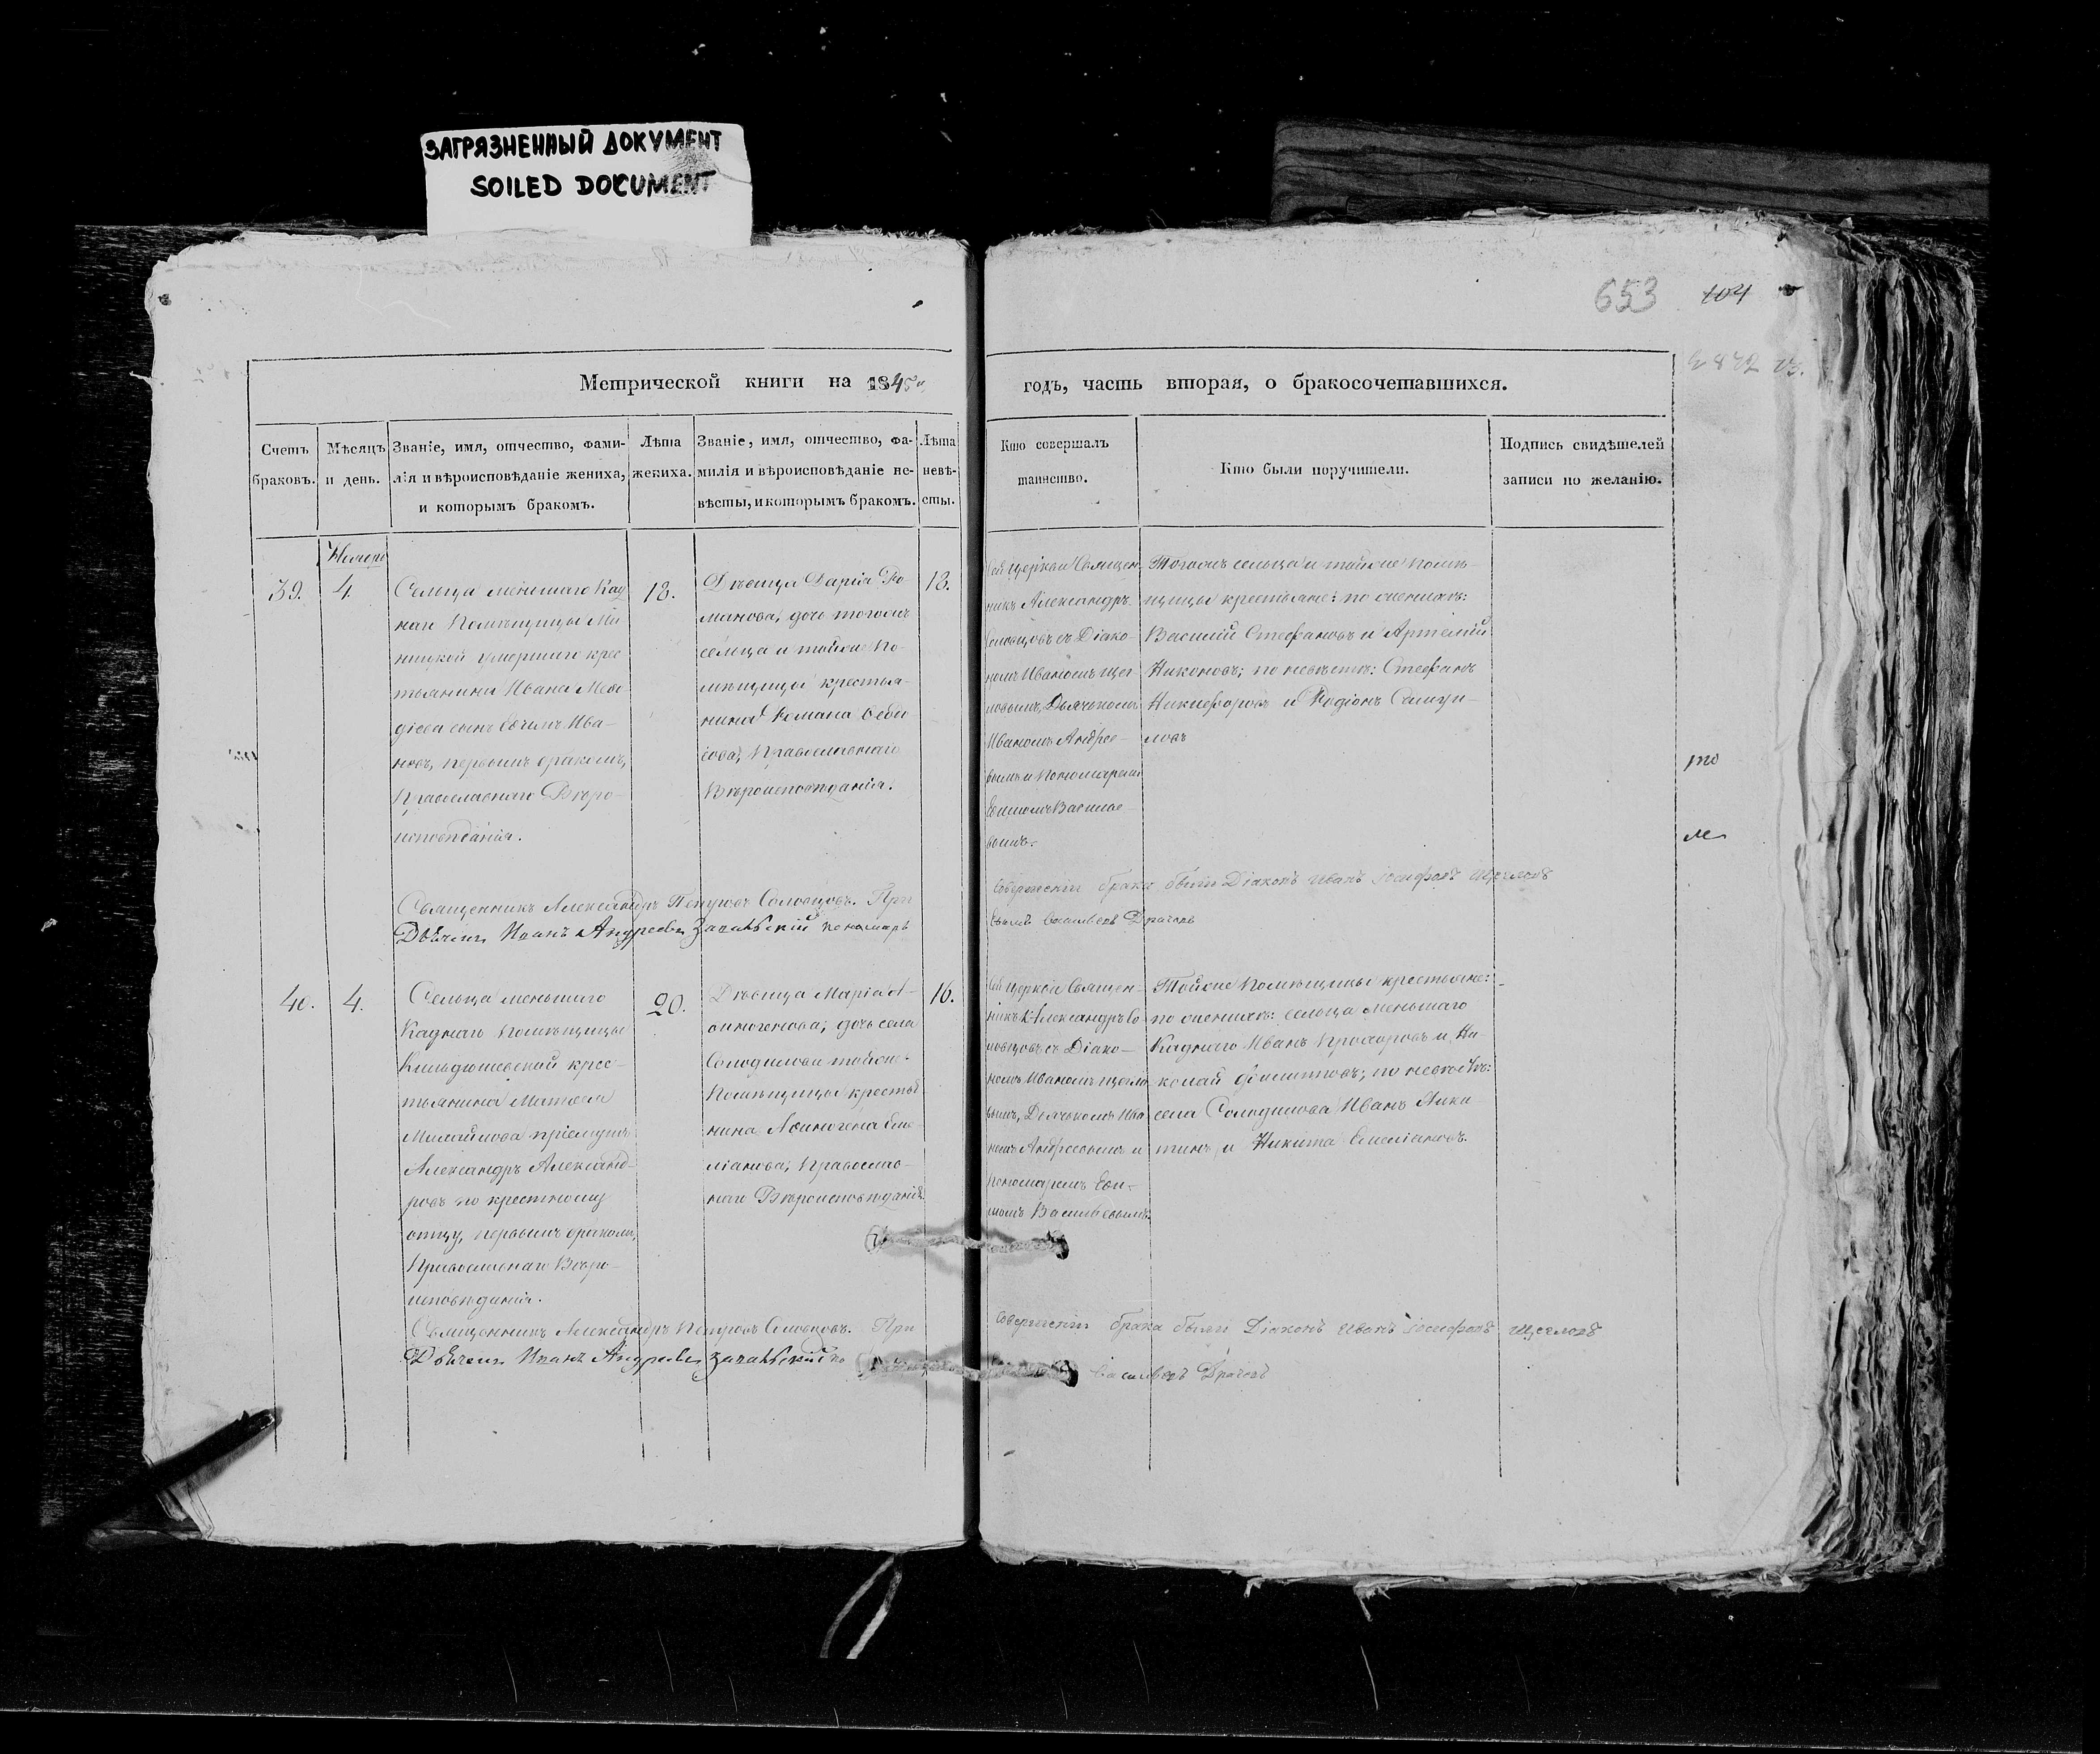 ЗАГРЯЗНЕННЫЙ ДОКУМЕНТ
SOILED DOCUMENT
653 104
Метрической книги на 1845
годъ, часть вторая, о бракосочетавшихся.
Счетъ
браковъ.
Мѣсяцъ
и день.
Званіе, имя, отчество, фами-
лія и вѣроисповѣданіе жениха,
и которымъ бракомъ.
Лѣта
жениха.
Званіе, имя, отчество, фа-
милія и вѣроисповѣданіе не-
вѣсты, и которымъ бракомъ.
Лѣта
невѣ-
сты.
Кто совершалъ
таинство.
Кто были поручители.
Подпись свидѣтелей
записи по желанію.
39.
4.
Сельца меншаго Кад
наго Помѣщицы
умершаго крес
тьянина Ивана
сынъ Ива-
новъ, первымъ бракомъ,
Православнаго Вѣро-
исповѣданія.
18.
Дѣвица Дарія Ро
манова, дочь тогожъ
сельца и тойже По-
мѣщицы крестья-
нина Романа
Православнаго
Вѣроисповѣданія.
18.
Сей Церкви Священ
никъ Александръ
Соловцовъ съ Діако-
номъ Иваномъ Щег-
ловымъ, Дьячкомъ
Иваномъ Андрее-
вымъ и Пономаремъ
Ефимомъ Василье-
вымъ.
Тогожъ сельца и тойже Помѣ-
щицы крестьяне: по женихѣ:
Василій Стефановъ и Артемій
Никоновъ; по невѣстѣ: Стефанъ
Никифоровъ и Родіонъ Самуи-
ловъ
Священникъ Александръ Петровъ Соловцовъ. При
совершеніи брака были Діаконъ Иванъ Іосифовъ Щегловъ
Дьячекъ Иванъ Андреевъ пономарь
Ефимъ Васильевъ Драчевъ
40.
4.
Сельца меньшаго
Каднаго помѣщицы
Кильдюшевской крес-
тьянина Матвея
Михайлова пріемышъ
Александръ Александ-
ровъ по крестному
отцу, первымъ бракомъ,
Православнаго Вѣро-
исповѣданія.
20.
Дѣвица Марія А-
финогенова; дочь села
Солодилова тойже
Помѣщицы крестья
нина Афиногена Еме
ліанова; Православ-
наго Вѣроисповѣданія.
16.
Сей Церкви Священ-
никъ Александръ Со-
ловцовъ съ Діако-
номъ Иваномъ Щегло
вымъ, Дьячкомъ Ива
номъ Андреевымъ и
Пономаремъ Ефи-
момъ Васильевымъ.
Тойже Помѣщицы крестьяне:
по женихѣ: сельца меньшаго
Каднаго Иванъ Прохоровъ и Ни-
колай Филиповъ; по невѣстѣ:
села Солодилова Иванъ Ники
тинъ и Никита Емеліановъ.
Священникъ Александръ Петровъ Соловцовъ. При
совершеніи брака были Діаконъ Иванъ Іосифовъ Щегловъ
Дьячекъ Иванъ Андреевъ
Васильевъ Драчевъ